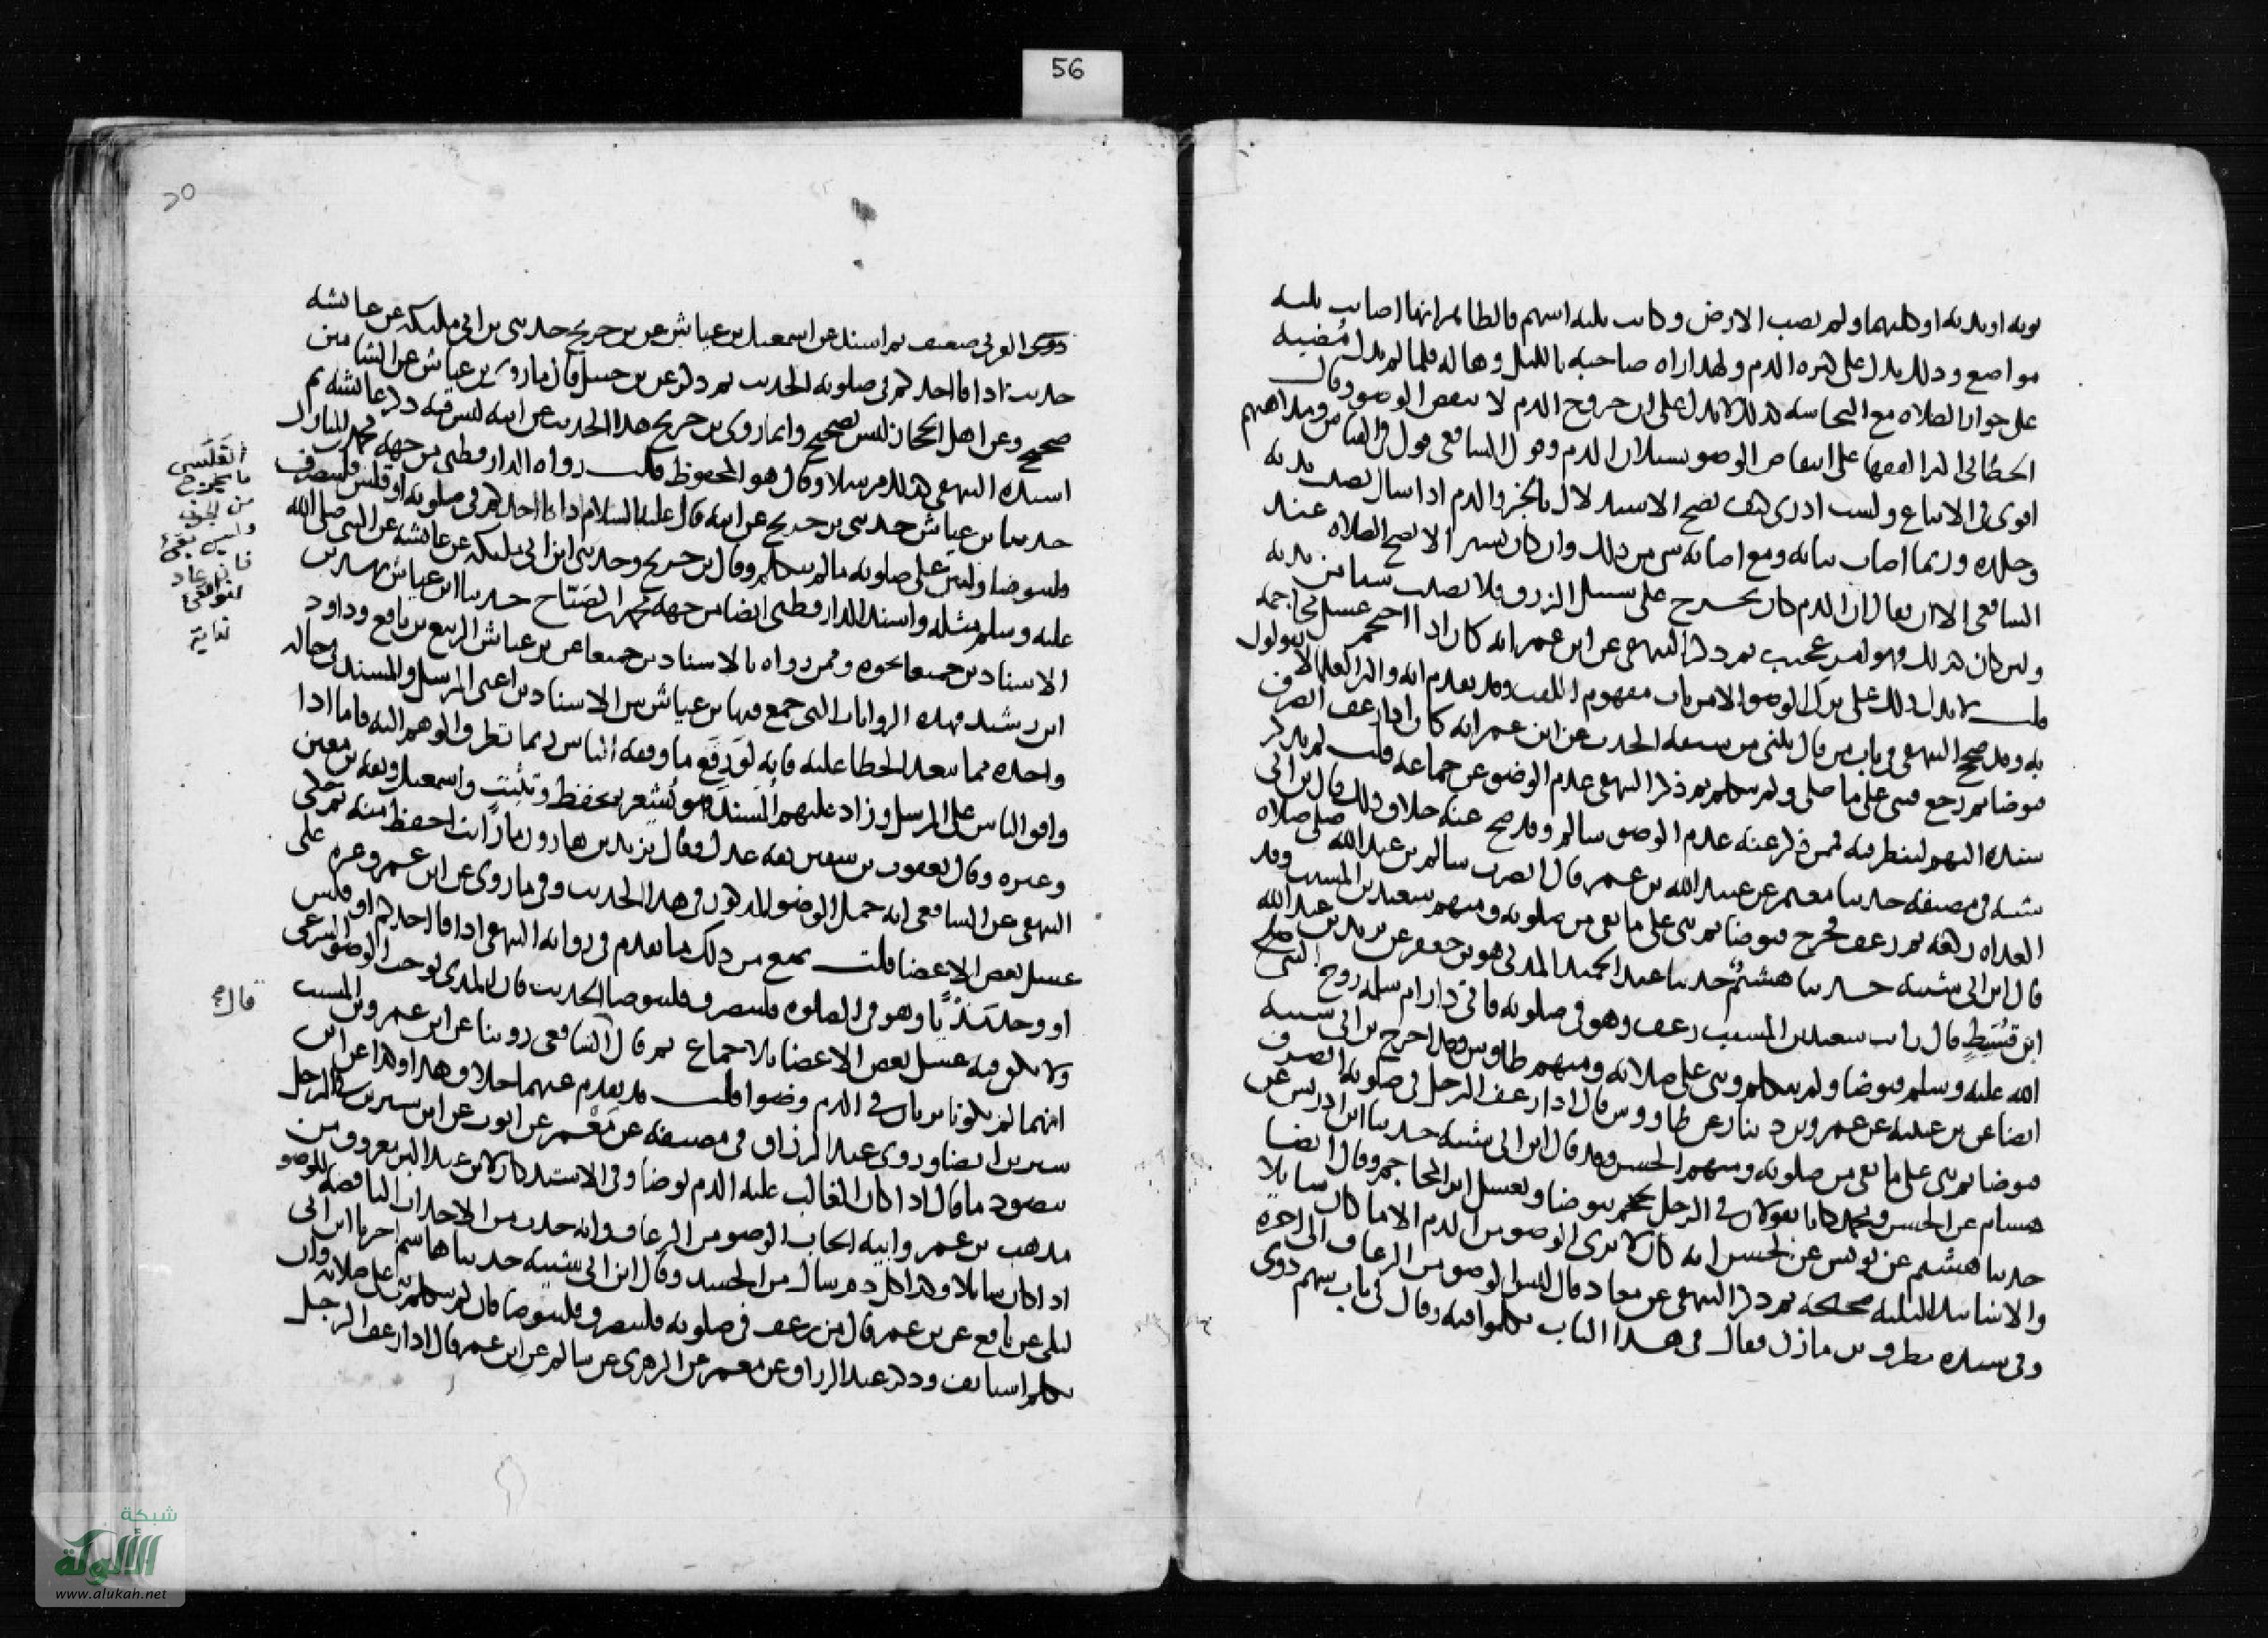 56
ثوبه او بدنه او كليهما ولم يصب الارض وكانت ثلثة اسهم فالظاهر انها اصابت ثلثة
مواضع وذلك يدل على كثرة الدم ولهذا راه صاحبه بالليل وهاله فلما لم يدل مُضيه
على جواز الصلاه مع النجاسه كذلك لا يدل على ان خروج الدم لا ينقض الوضو وقال
الخطابي اكثر الفقها على انتقاض الوضو بسيلان الدم وقول الشافعي قول في القياس ومذاهبهم
اقوى في الاتباع ولست ادري كيف يصح الاستدلال بالخبر والدم اذا سال يصيب بدنه
وجلده وربما اصاب ثيابه ومع اصابة شي من ذلك وان كان يسيرا لا تصح الصلاه عند
الشافعي الا ان يقال ان الدم كان يخرج على سبيل الزرق فلا يصيب شيا من بدنه
ولين كان كذلك فهو امر عجيب ثم ذكر البيهقي عن ابن عمر انه كان اذا احتجم غسل محاجمه
قلت لا يدل ذلك على ترك الوضو الا من باب مفهوم اللقب وقد تقدم انه واكثر العلما لا يقولون
به وقد صحح البيهقي في باب من قال يبنى من سبقه الحدث عن ابن عمر انه كان اذا رعف انصرف
فتوضا ثم رجع فبنى على ما صلى ولم يتكلم ثم ذكر البيهقي عدم الوضوء عن جماعه قلت لم يذكر
سنده اليهم لينظر فيه فممن ذكر عنه عدم الوضو سالم وقد صح عنه خلاف ذلك قال ابن ابي
شيبه في مصنفه حدثنا معمر عن عبيد الله بن عمر قال ابصرت سالم بن عبد الله صلى صلاه
الغداه ركعه ثم رعف فخرج فتوضا ثم بنى على ما بقي من صلوته ومنهم سعيد بن المسيب وقد
قال ابن ابي شيبه حدثنا هشيم حدثنا عبد الحميد المدني هو بن جعفر عن يزيد بن عبد الله
ابن قُسَيطٍ قال رايت سعيد بن المسيب رعف وهو في صلوته فاتى دار ام سلمه زوج النبي صلى
الله عليه وسلم فتوضا ولم يتكلم وبنى على صلاته ومنهم طاوس وقد اخرج بن ابي شيبه
ايضا عن بن عيينه عن عمرو بن دينار عن طاووس قال اذا رعف الرجل في صلوته انصرف
فتوضا ثم بنى على ما بقي من صلوته ومنهم الحسن وقد قال ابن ابي شيبه حدثنا ابن ادريس عن
هشام عن الحسن ومحمد كانا يقولان في الرجل يحتجم يتوضا ويغسل اثر المحاجم وقال ايضا
حدثنا هشيم عن يونس عن الحسن انه كان لا يرى الوضو من الدم الا ما كان سايلا
والاسانيد الثلثه صحيحه ثم ذكر البيهقي عن معاذ قال ليس الوضو من الرعاف الى اخره
وفي سنده مطرف بن مازن فقال في هذا الباب تكلموا فيه وقال في باب سهم ذوي
٢٥
ذوي القربى ضعيف ثم اسند عن اسمعيل بن عياش عن بن جريج حدثني بن ابي مليكه عن عائشه
حديث اذا قا احدكم في صلوته الحديث ثم ذكر عن بن حنبل قال ما روى بن عياش عن الشاميين
صحيح وعن اهل الحجاز ليس بصحيح وانما روى بن جريج هذا الحديث عن ابيه ليس فيه ذكر عائشه ثم
اسنده البيهقي كذلك مرسلا وقال هو المحفوظ قلت رواه الدارقطني من جهه محمد بن المبارك
حدثنا بن عياش حدثني بن جريج عن ابيه قال عليه السلام اذا قا احدكم في صلوته او قلس فلينصرف
فليتوضا وليبن على صلوته ما لم يتكلم وقال بن جريج وحدثني ابن ابي مليكه عن عائشه عن النبي صلى الله
عليه وسلم مثله واسند الدارقطني ايضا من جهه محمد بن الصَبّاح حدثنا ابن عياش بهذين
الاسنادين جميعا نحوه وممن رواه بالاسنادين جميعا عن بن عياش الربيع بن نافع وداود
ابن رشيد فهذه الروايات التي جمع فيها بن عياش بين الاسنادين اعني المرسل والمسند في حاله
واحده مما يبعد الخطا عليه فانه لو رفع ما وقفه الناس ربما تطرق الوهم اليه فاما اذا
وافق الناس على المرسل وزاد عليهم المُسْنَد فهو يُشعر بتحفظ وتثَبُّتٍ واسمعيل وثقه بن معين
وغيره وقال يعقوب بن سفين ثقه عدل وقال يزيد بن هارون ما رايت احفظ منه ثم حكى
البيهقي عن الشافعي انه حمل الوضو المذكور في هذا الحديث وفي ما روى عن ابن عمر وغيره على
غسل بعض الاعضا قلت يمنع من ذلك ما تقدم في روايه البيهقي اذا قا احدكم او قلس
او وجد مَذْيًا وهو في الصلوه فلينصرف فليتوضا الحديث فان المذي يوجب الوضو الشرعي
ولا يكفي فيه غسل بعض الاعضا بالاجماع ثم قال الشافعي روينا عن ابن عمر وبن المسيب
انهما لم يكونا يريان في الدم وضوا قلت قد تقدم عنهما خلاف هذا وكذا عن ابن
سيرين ايضا وروى عبد الرزاق في مصنفه عن مَعْمر عن ايوب عن ابن سيرين في الرجل
يبصق دما قال اذا كان الغالب عليه الدم توضا وفي الاستذكار لابن عبد البر معروف من
مذهب بن عمر وابيه ايجاب الوضو من الرعاف وانه حدث من الاحداث الناقضه للوضو
اذا كان سايلا وكذا كل دم سال من الجسد وقال ابن ابي شيبه حدثنا هاشم اخبرنا ابن ابي
ليلى عن نافع عن بن عمر قال من رعف في صلوته فلينصرف فليتوضا فان لم يتكلم بنى على صلاته وان
تكلم استانف وذكر عبد الرزاق عن معمر عن الزهري عن سالم عن ابن عمر قال اذا رعف الرجل
القَلَس
ما يخرج
من الجوف
وليس بقيء
فان عاد
فهو القيء
نهاية
شبكة
الألوكة
www.alukah.net